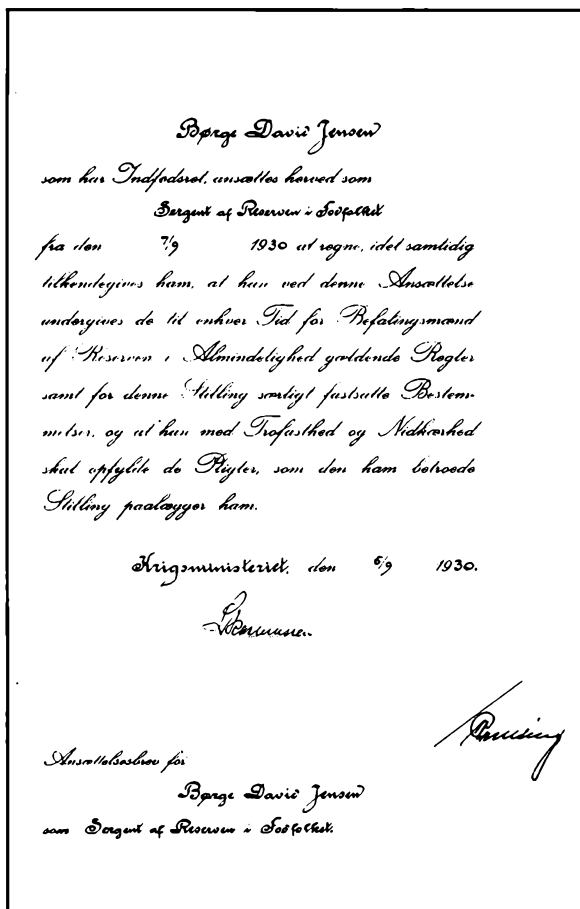 Børge David Jensen
som har Indfødsret, ansættes herved som
Sergent af Reserven i Fodfolket
fra den 7/9 1930 at regne, idet samtidig
tilkendegives ham, at han ved denne Ansættelse
undergives de til enhver Tid for Befalingsmænd
af Reserven i Almindelighed gældende Regler
samt for denne Stilling særligt fastsatte Bestem-
melser, og at han med Trofasthed og Nidkærhed
skal opfylde de Pligter, som den ham betroede
Stilling paalægger ham.
Krigsministeriet, den 5/9 1930.
Ansættelsesbrev for
Børge David Jensen
som Sergent af Reserven i Fodfolket.